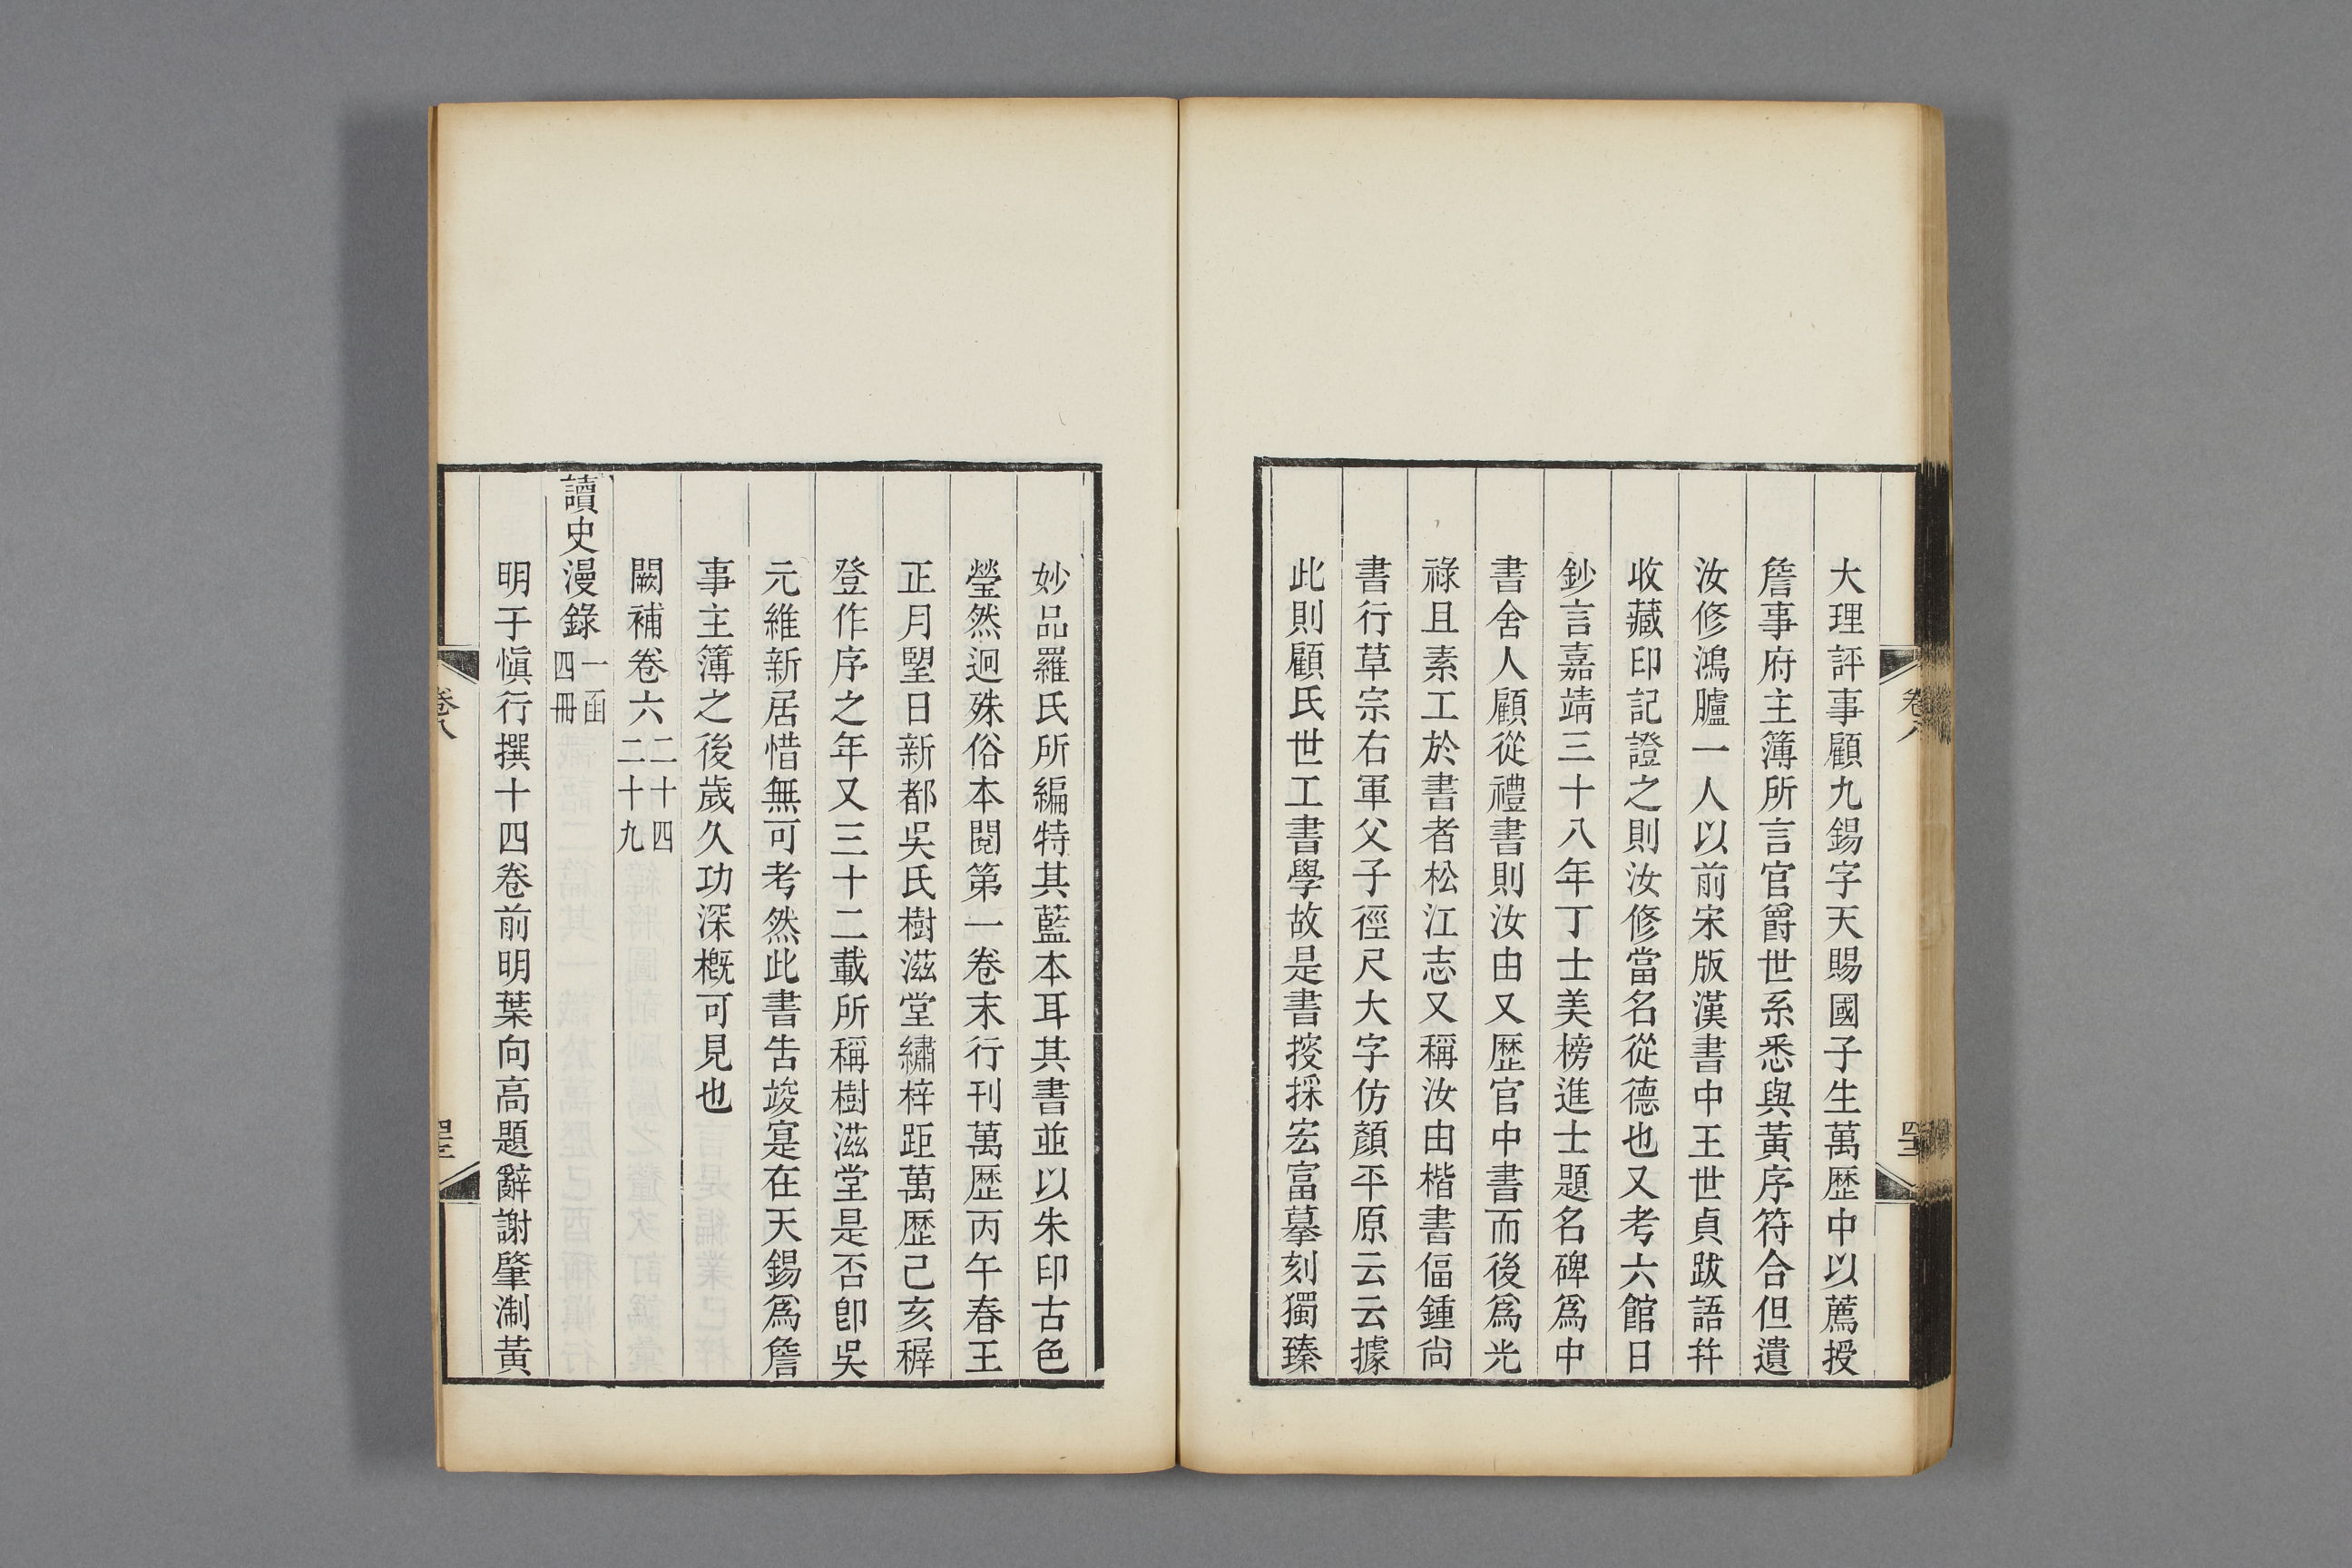 大理評事顧九錫字天賜國子生萬歴中以薦授
詹事府主簿所言官爵世系悉與黃序符合但遺
汝修鴻臚一人以前宋版漢書中王世貞跋語幷
收藏印記證之則汝修當名從德也又考六館日
鈔言嘉靖三十八年丁士美榜進士題名碑爲中
書舍人顧從禮書則汝由又歴官中書而後爲光
祿且素工於書者松江志又稱汝由楷書偪鍾尙
書行草宗右軍父子徑尺大字仿顏平原云云據
此則顧氏世工書學故是書按採宏富摹刻獨臻
卷八
妙品羅氏所編特其藍本耳其書並以朱印古色
瑩然迥殊俗本閱第一卷末行刊萬歴丙午春王
正月朢日新都吳氏樹滋堂繡梓距萬歴己亥穉
登作序之年又三十二載所稱樹滋堂是否卽吳
元維新居惜無可考然此書告竣寔在天錫爲詹
事主簿之後歲久功深槪可見也
闕補卷六二十四
二十九
讀史漫錄一函
四冊
明于愼行撰十四卷前明葉向高題辭謝肇淛黃
卷八